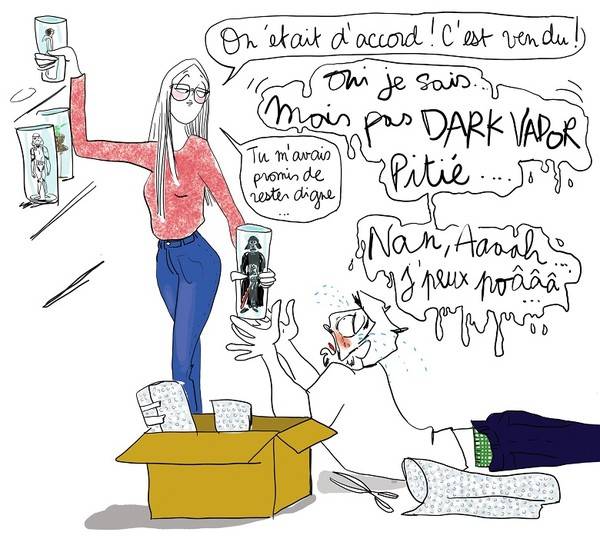 On était d'accord ! C'est vendu !
Oui je sais...
Mais pas DARK VADOR
Pitié ....
Tu m'avais
promis de
rester digne
...
Nan, Aaaah...
j'peux poâââ
...